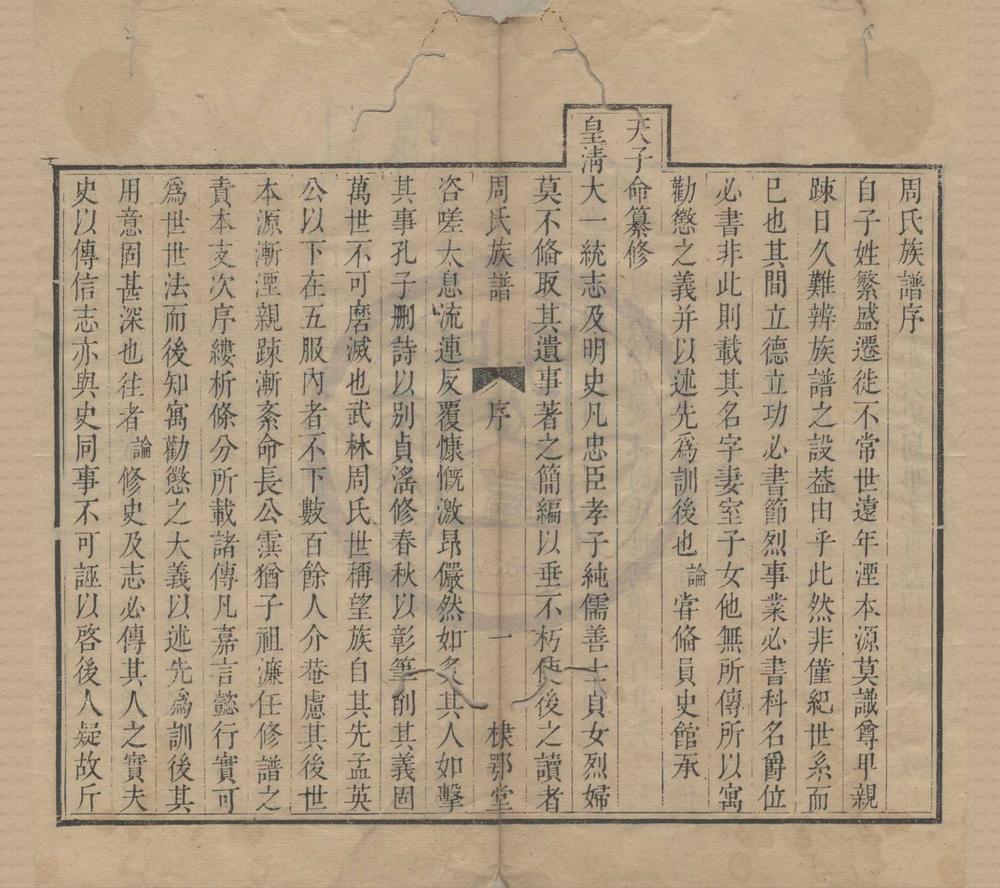 周氏族譜序
自子姓繁盛遷徙不常世遠年湮本源莫識尊卑親
踈日久難辨族譜之設葢由乎此然非僅紀世系而
巳也其間立德立功必書節烈事業必書科名爵位
必書非此則載其名字妻室子女他無所傳所以寓
勸懲之義并以述先爲訓後也論甞偹員史館承
天子命纂修
皇淸大一統志及明史凡忠臣孝子純儒善士貞女烈婦
莫不偹取其遺事著之簡編以垂不朽使後之讀者
周氏族譜 序 一 棣鄂堂
咨嗟太息流連反覆慷慨激昂儼然如炙其人如擊
其事孔子刪詩以别貞滛修春秋以彰筆削其義固
萬世不可磨滅也武林周氏世稱望族自其先孟英
公以下在五服內者不下數百餘人介菴慮其後世
本源漸湮親踈漸紊命長公雲猶子祖濂任修譜之
責本支次序縷析條分所載諸傳凡嘉言懿行實可
爲世世法而後知寓勸懲之大義以述先爲訓後其
用意固甚深也往者論修史及志必傳其人之實夫
史以傳信志亦與史同事不可誣以啓後人疑故斤